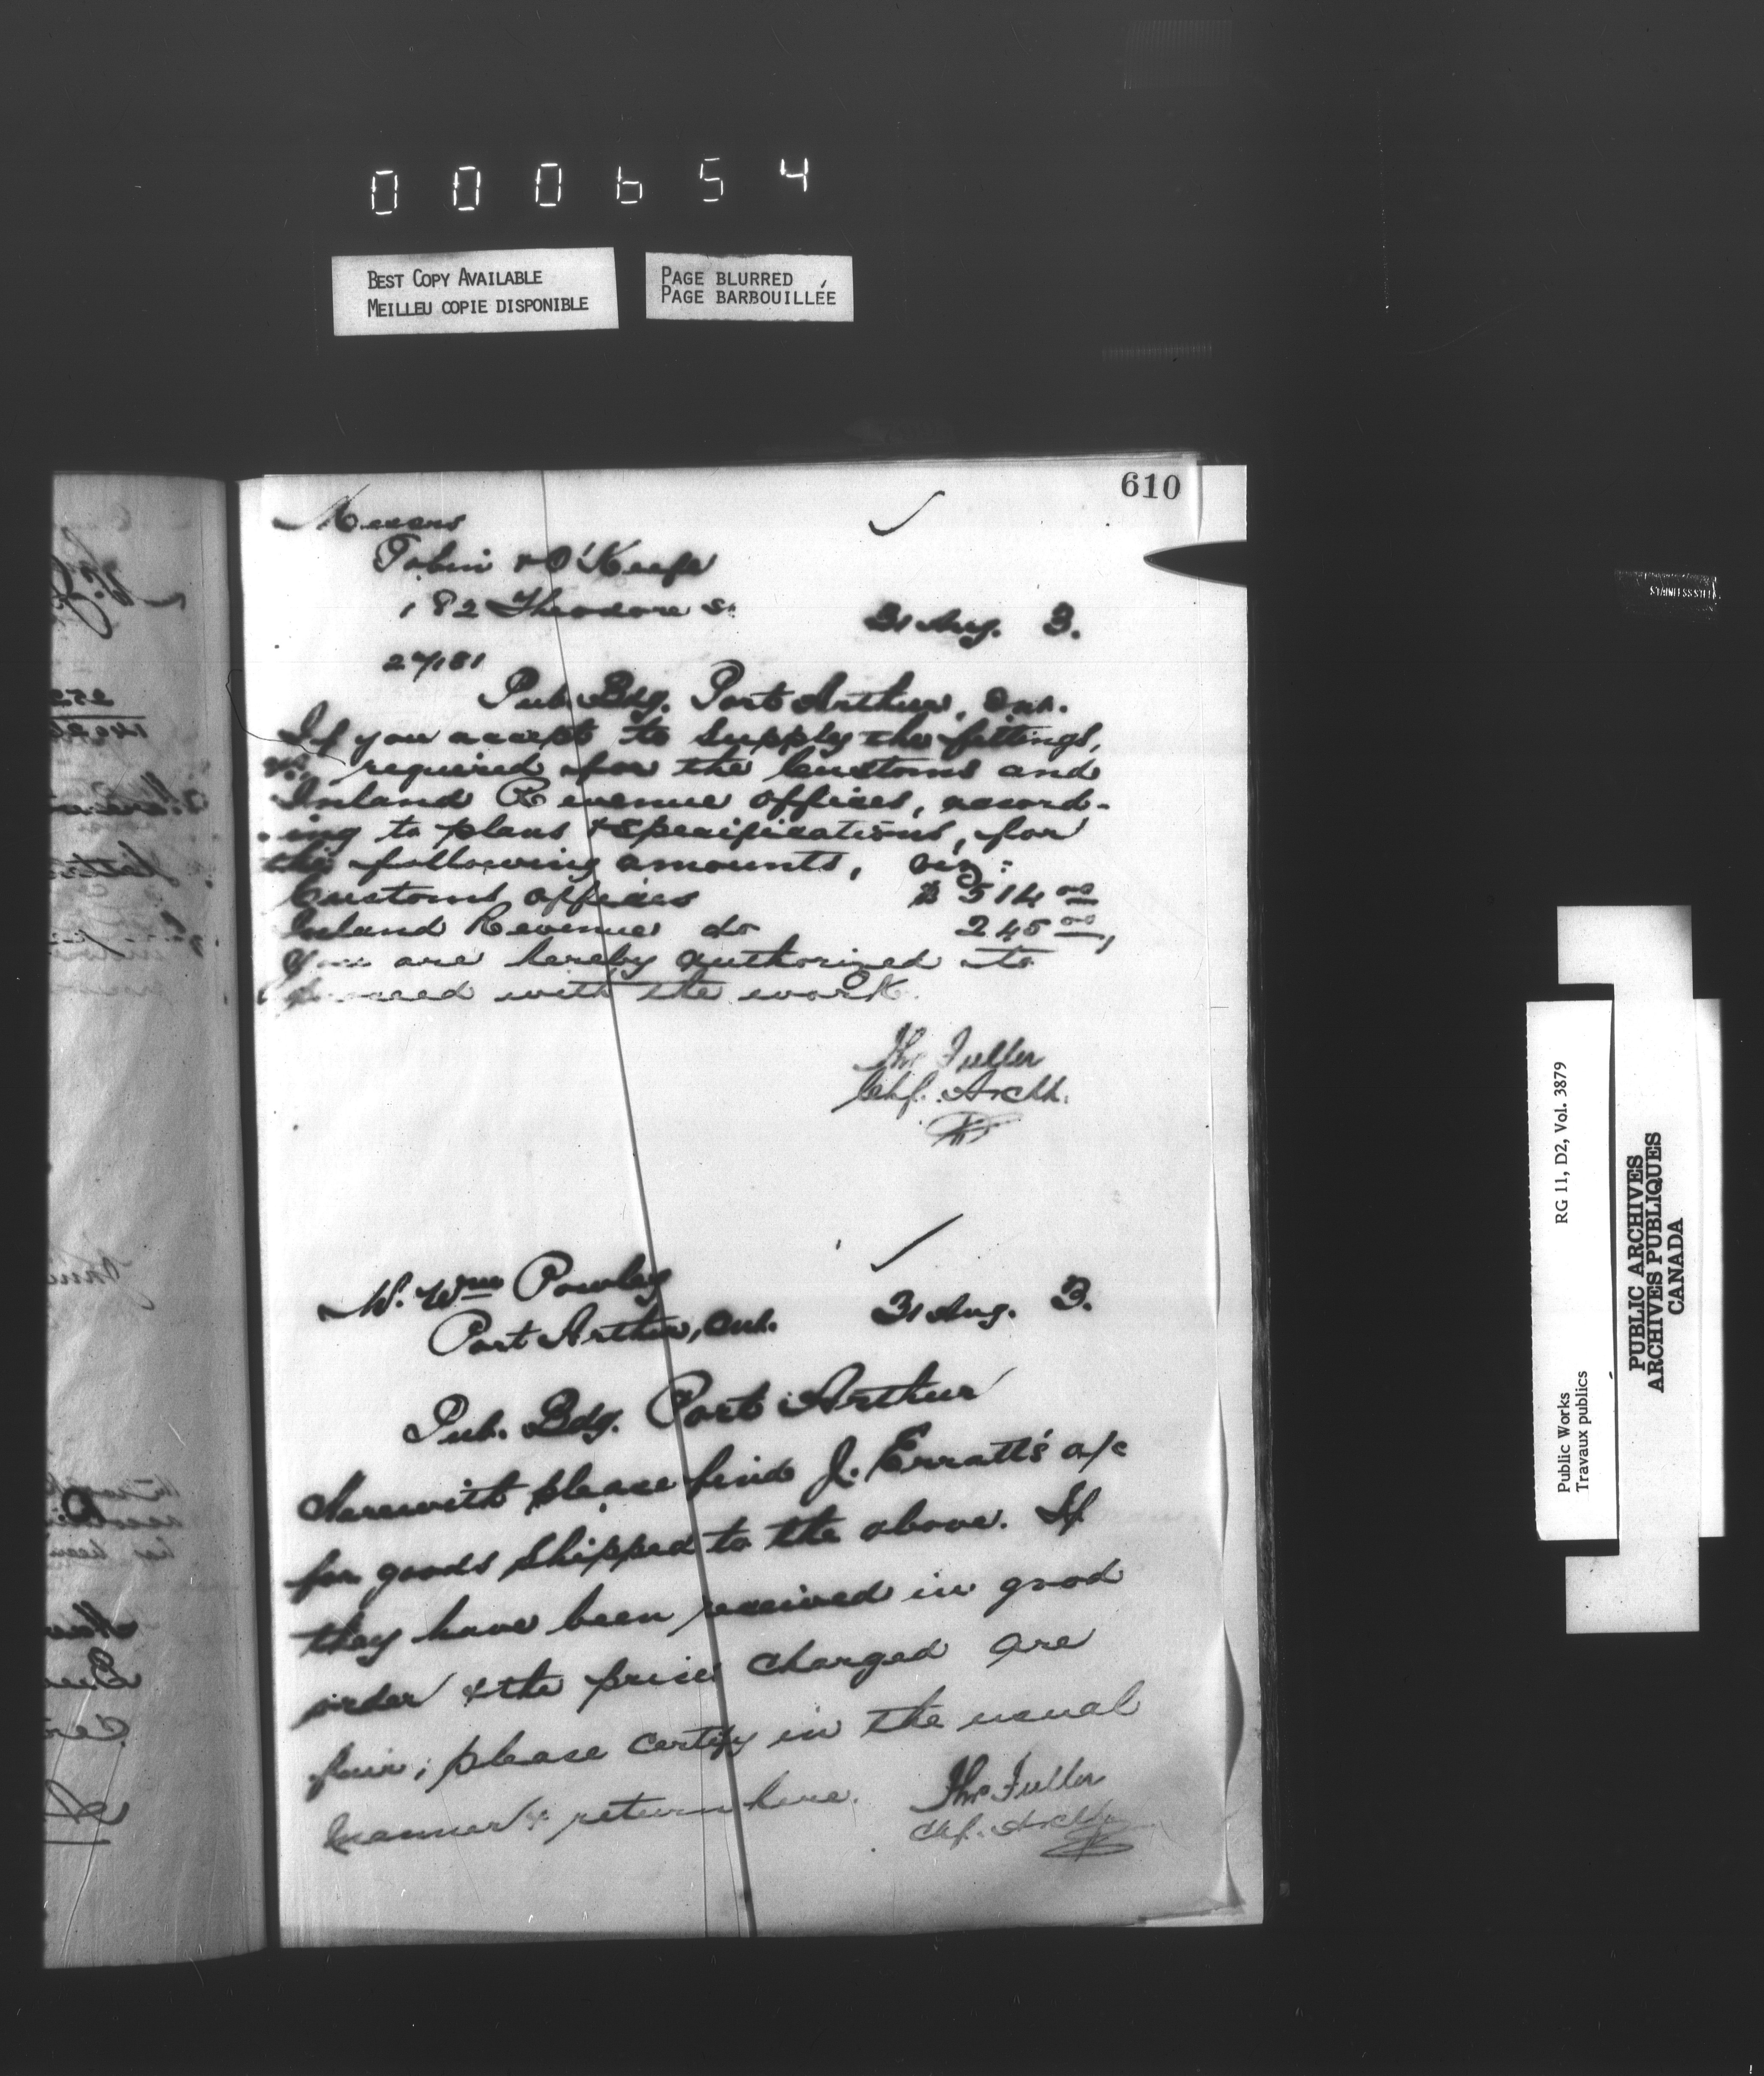 000654
BEST COPY AVAILABLE
MEILLEU COPIE DISPONIBLE
PAGE BLURRED
PAGE BARBOUILLÉE
610
Messrs
Tobin & O'Keefe
182 Theodore St.
31 Aug. 3.
27181
Pub. Bdg. Port Arthur, Ont.
If you accept to supply the fittings,
&c, required for the Customs and
Inland Revenue offices, accord-
ing to plans & specifications, for
the following amounts, viz:
Customs offices $514 00
Inland Revenue do 245 00,
you are hereby authorized to
proceed with the work.
Thos Fuller
Chf. Archt.
M. Wm Powley
Port Arthur, Ont.
31 Aug. 3.
Pub. Bdg. Port Arthur
Herewith please find J. Erratt's a/c
for goods shipped to the above. If
they have been received in good
order & the prices charged are
fair, please certify in the usual
manner & return here.
Thos Fuller
Chf. Archt.
STAINLESS STEEL
RG 11, D2, Vol. 3879
Public Works
Travaux publics
PUBLIC ARCHIVES
ARCHIVES PUBLIQUES
CANADA